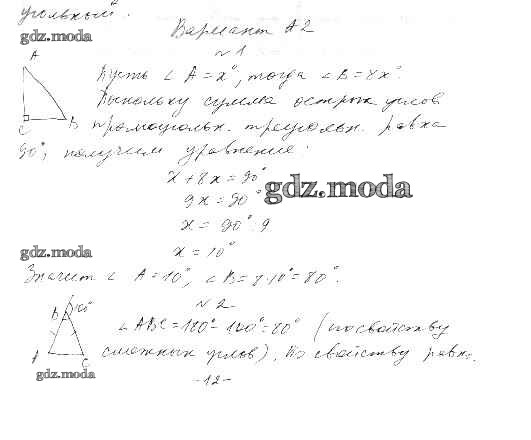 угольный.
gdz.moda
Вариант А2
№1
A
Пусть ∠ A = x°, тогда ∠ B = 8x°.
Поскольку сумма острых углов
C B прямоугольн. треугольн. равна
90°, получим уравнение:
x + 8x = 90°
9x = 90°
gdz.moda
x = 90° : 9
x = 10°
gdz.moda
Значит ∠ A = 10°, ∠ B = 8·10° = 80°.
№2
B
∠ABC = 180° - 100° = 80° (по свойству
A C смежных углов). По свойству равн.
gdz.moda
-12-